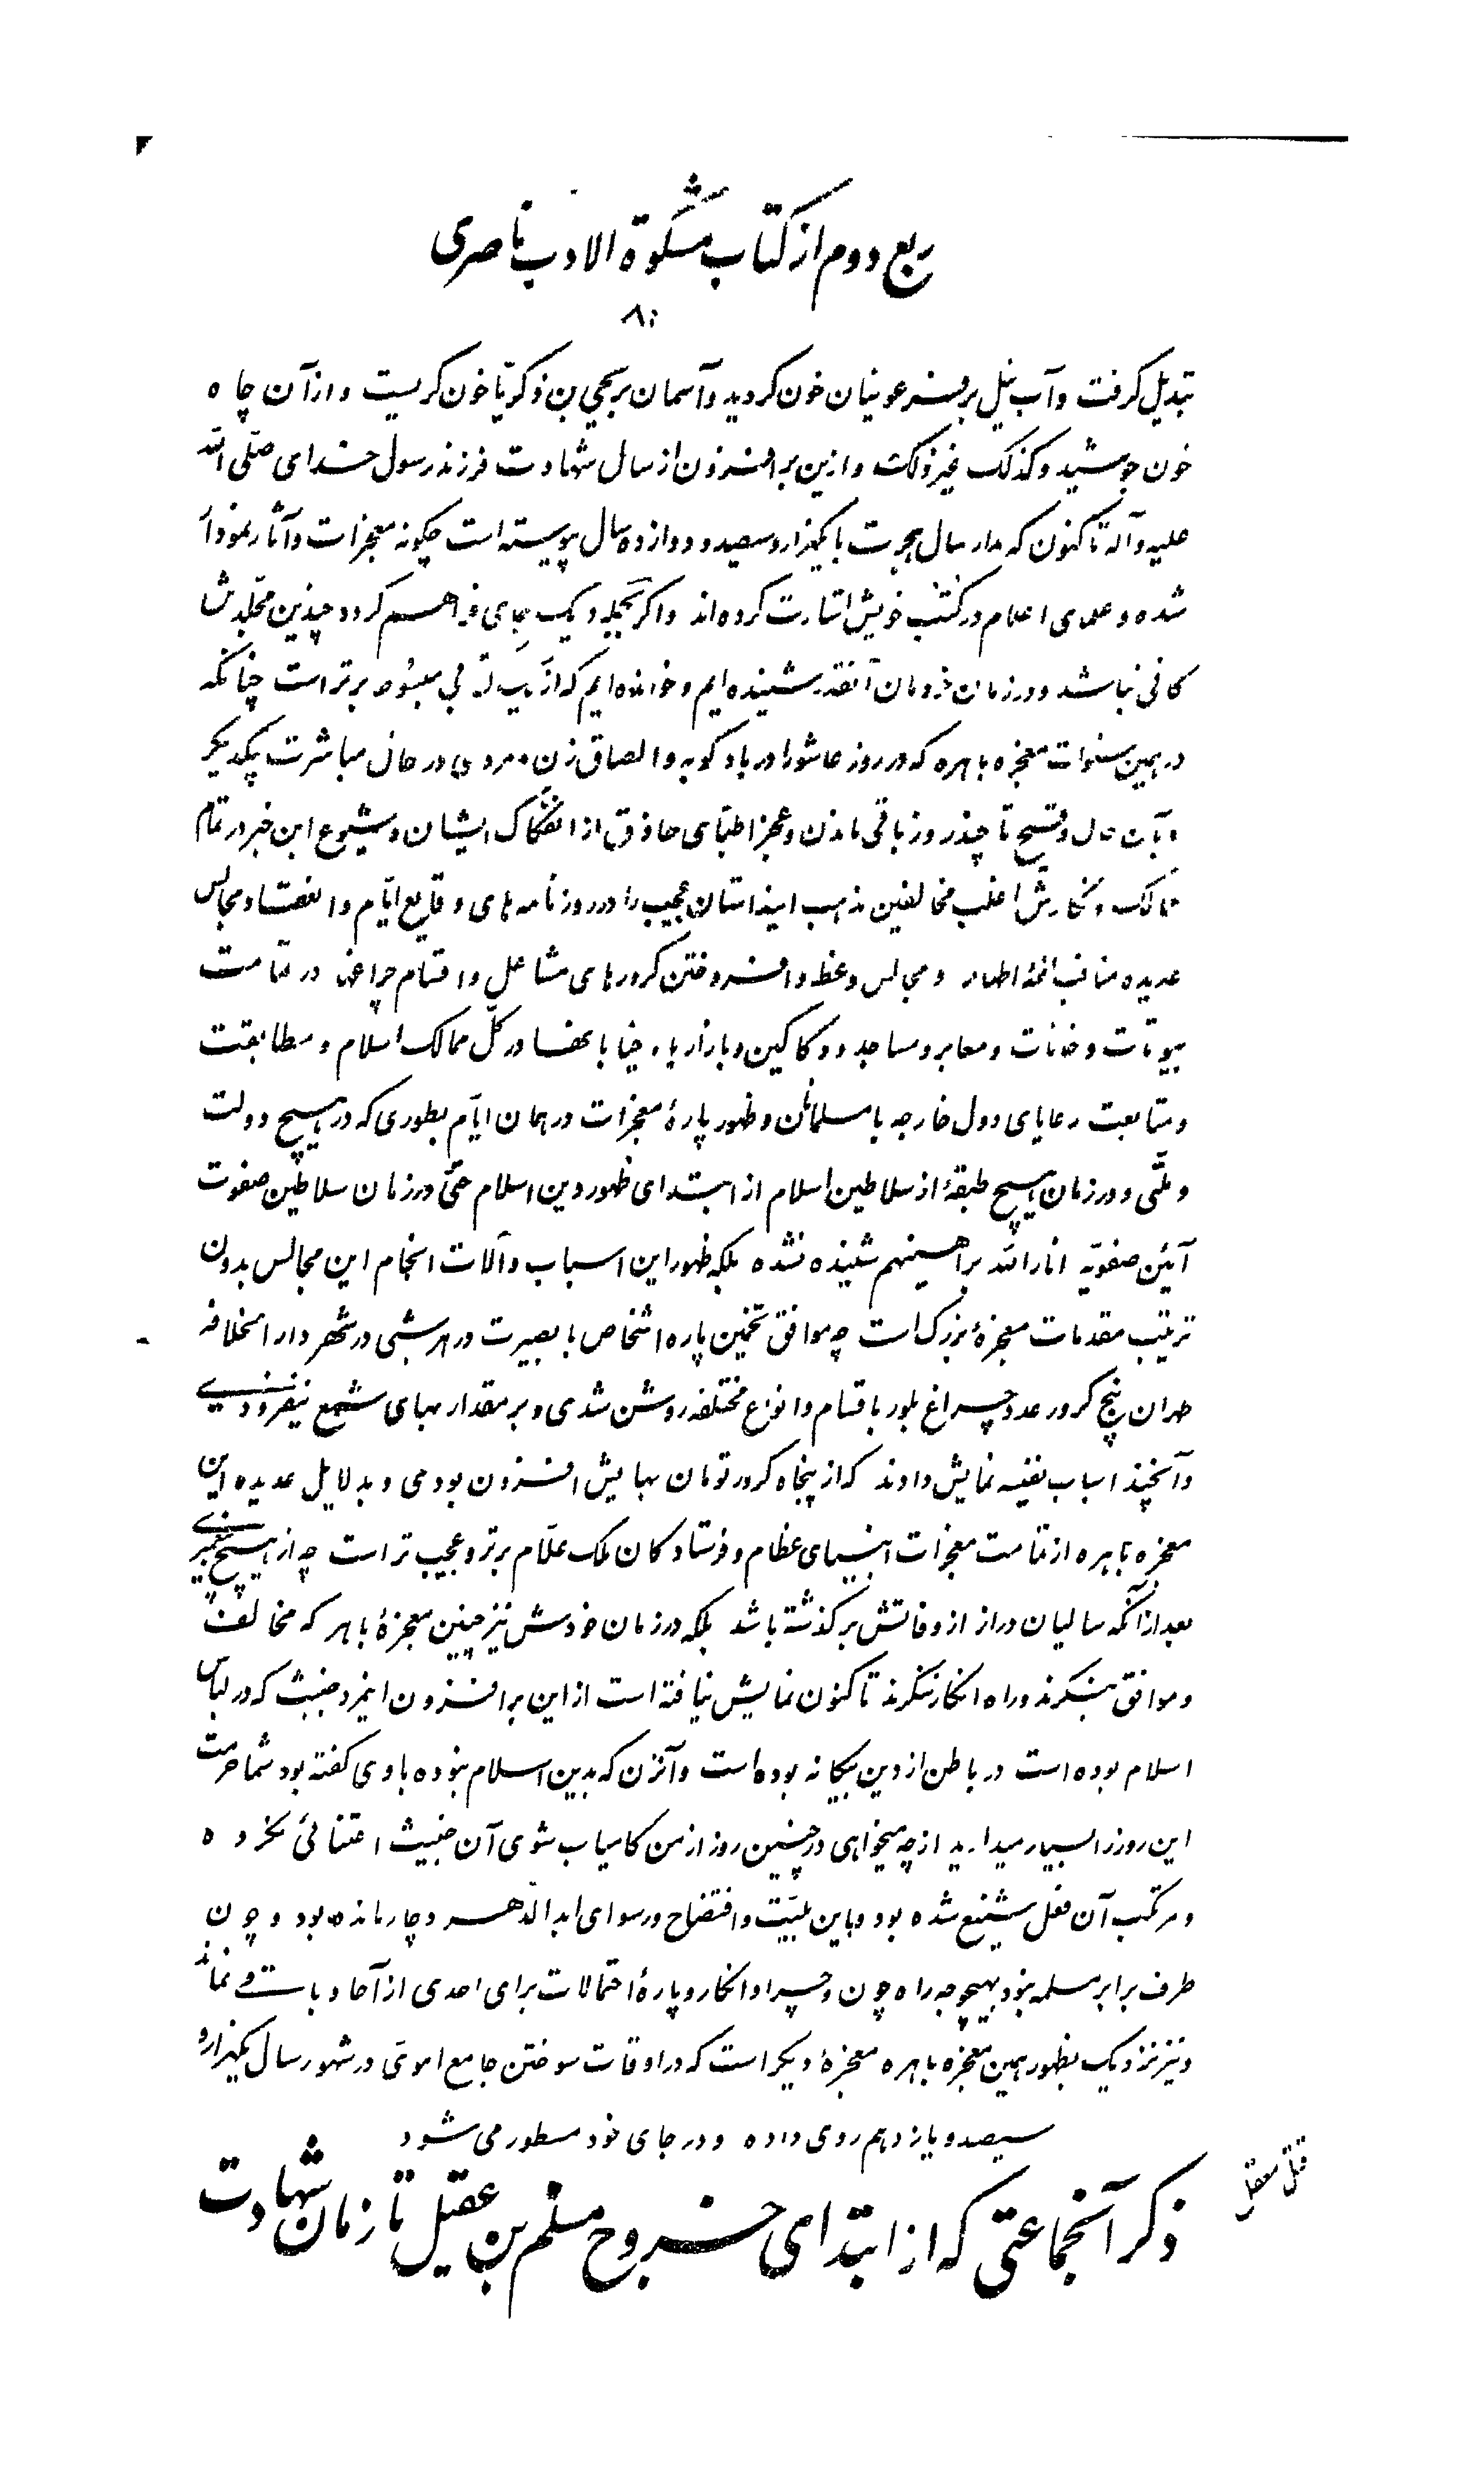 ربع دوم از کتاب مشکوة الادب ناصری
۸۰
تبدیل کرفت و آب نیل بر فرعونیان خون کردید و آسمان بر یحیی بن زکریّا خون کریست و از آن چاه
خون جوشید و کذلک غیر ذلک و ازین بر افزون از سال شهادت فرزند رسول خدای صلّی اللّه
علیه و آله تاکنون که مدار سال هجرت با یکهزار و سیصد و دوازده سال پیوسته است چکونه معجزات و آثار نمودار
شده و علمای اعلام در کتب خویش اشارت کرده‌اند و اکر بجمله در یک بجای فراهم کردد چندین مجلّدش
کافی نباشد و در زمان خودمان آنقدر شنیده‌ایم و خوانده‌ایم که از یک کتابی مبسوط برتر است چنانکه
در همین سنوات معجزه باهره که در روز عاشورا در بادکوبه و الصاق زن و مردی در حال مباشرت یکدیکر
و بآن حال وقیح تا چند روز باقی ماندن و عجز اطبّای حاذق از انفکاک ایشان و شیوع این خبر در تمام
ممالک و نکارش اغلب مخالفین مذهب اینداستان عجیب را در روزنامه‌های وقایع ایّام و انعقاد مجالس
عدیده مناقب ائمّه اطهار و مجالس وعظ و افروختن کرورهای مشاعل و اقسام چراغها در تمامت
بیوتات و خانات و معابر و مساجد و دکاکین و بازارها و خیابانها در کلّ ممالک اسلام و مطابقت
و متابعت رعایای دول خارجه با مسلمانان و ظهور پارهٔ معجزات در همان ایّام بطوری که در هیچ دولت
و ملّتی و در زمان هیچ طبقهٔ از سلاطین اسلام از ابتدای ظهور دین اسلام حتّی در زمان سلاطین صفوت
آئین صفویّه انار اللّه براهینهم شنیده نشده بلکه ظهور این اسباب و آلات انجام این مجالس بدون
ترتیب مقدمات معجزهٔ بزرک است چه موافق تخمین پاره اشخاص با بصیرت در هر شبی در شهر دار الخلافه
طهران پنج کرور عدد چراغ بلور باقسام و انواع مختلفه روشن شدی و بر مقدار بهای شمع بیفزودندی
و آنچند اسباب نفیسه نمایش دادند که از پنجاه کرور تومان بهایش افزون بودی و بدلایل عدیده این
معجزه باهره از تمامت معجزات انبیای عظام و فرستادکان ملک علّام برتر و عجیب تر است چه از هیچ پیغمبری
بعد از آنکه سالیان دراز از وفاتش برکذشته باشد بلکه در زمان خودش نیز چنین معجزهٔ باهر که مخالف
و موافق بنکرند و راه انکار نکیرند تاکنون نمایش نیافته است از این بر افزون اینمرد خبیث که در لباس
اسلام بوده است در باطن از دین بیکانه بوده است و آنزن که بدین اسلام نبوده با وی کفته بود شما حرمت
این روز را بسیار میدارید از چه میخواهی در چنین روز از من کامیاب شوی آن خبیث اعتنائی نکرده
و مرتکب آن فعل شنیع شده بود و باین بلیّت و افتضاح و رسوای ابد الدّهر دچار مانده بود و چون
طرف برابر مسلمه نبود بهیچوجه راه چون و چرا و انکار و پارهٔ احتمالات برای احدی از آحاد باقی نماند
و نیز نزدیک بظهور همین معجزه باهره معجزهٔ دیکر است که در اوقات سوختن جامع اموی در شهور سال یکهزار و
سیصد و یازدهم روی داده و در جای خود مسطور می‌شود
ذکر آنجماعتی که از ابتدای خروج مسلم بن عقیل تا زمان شهادت
قتل معقل